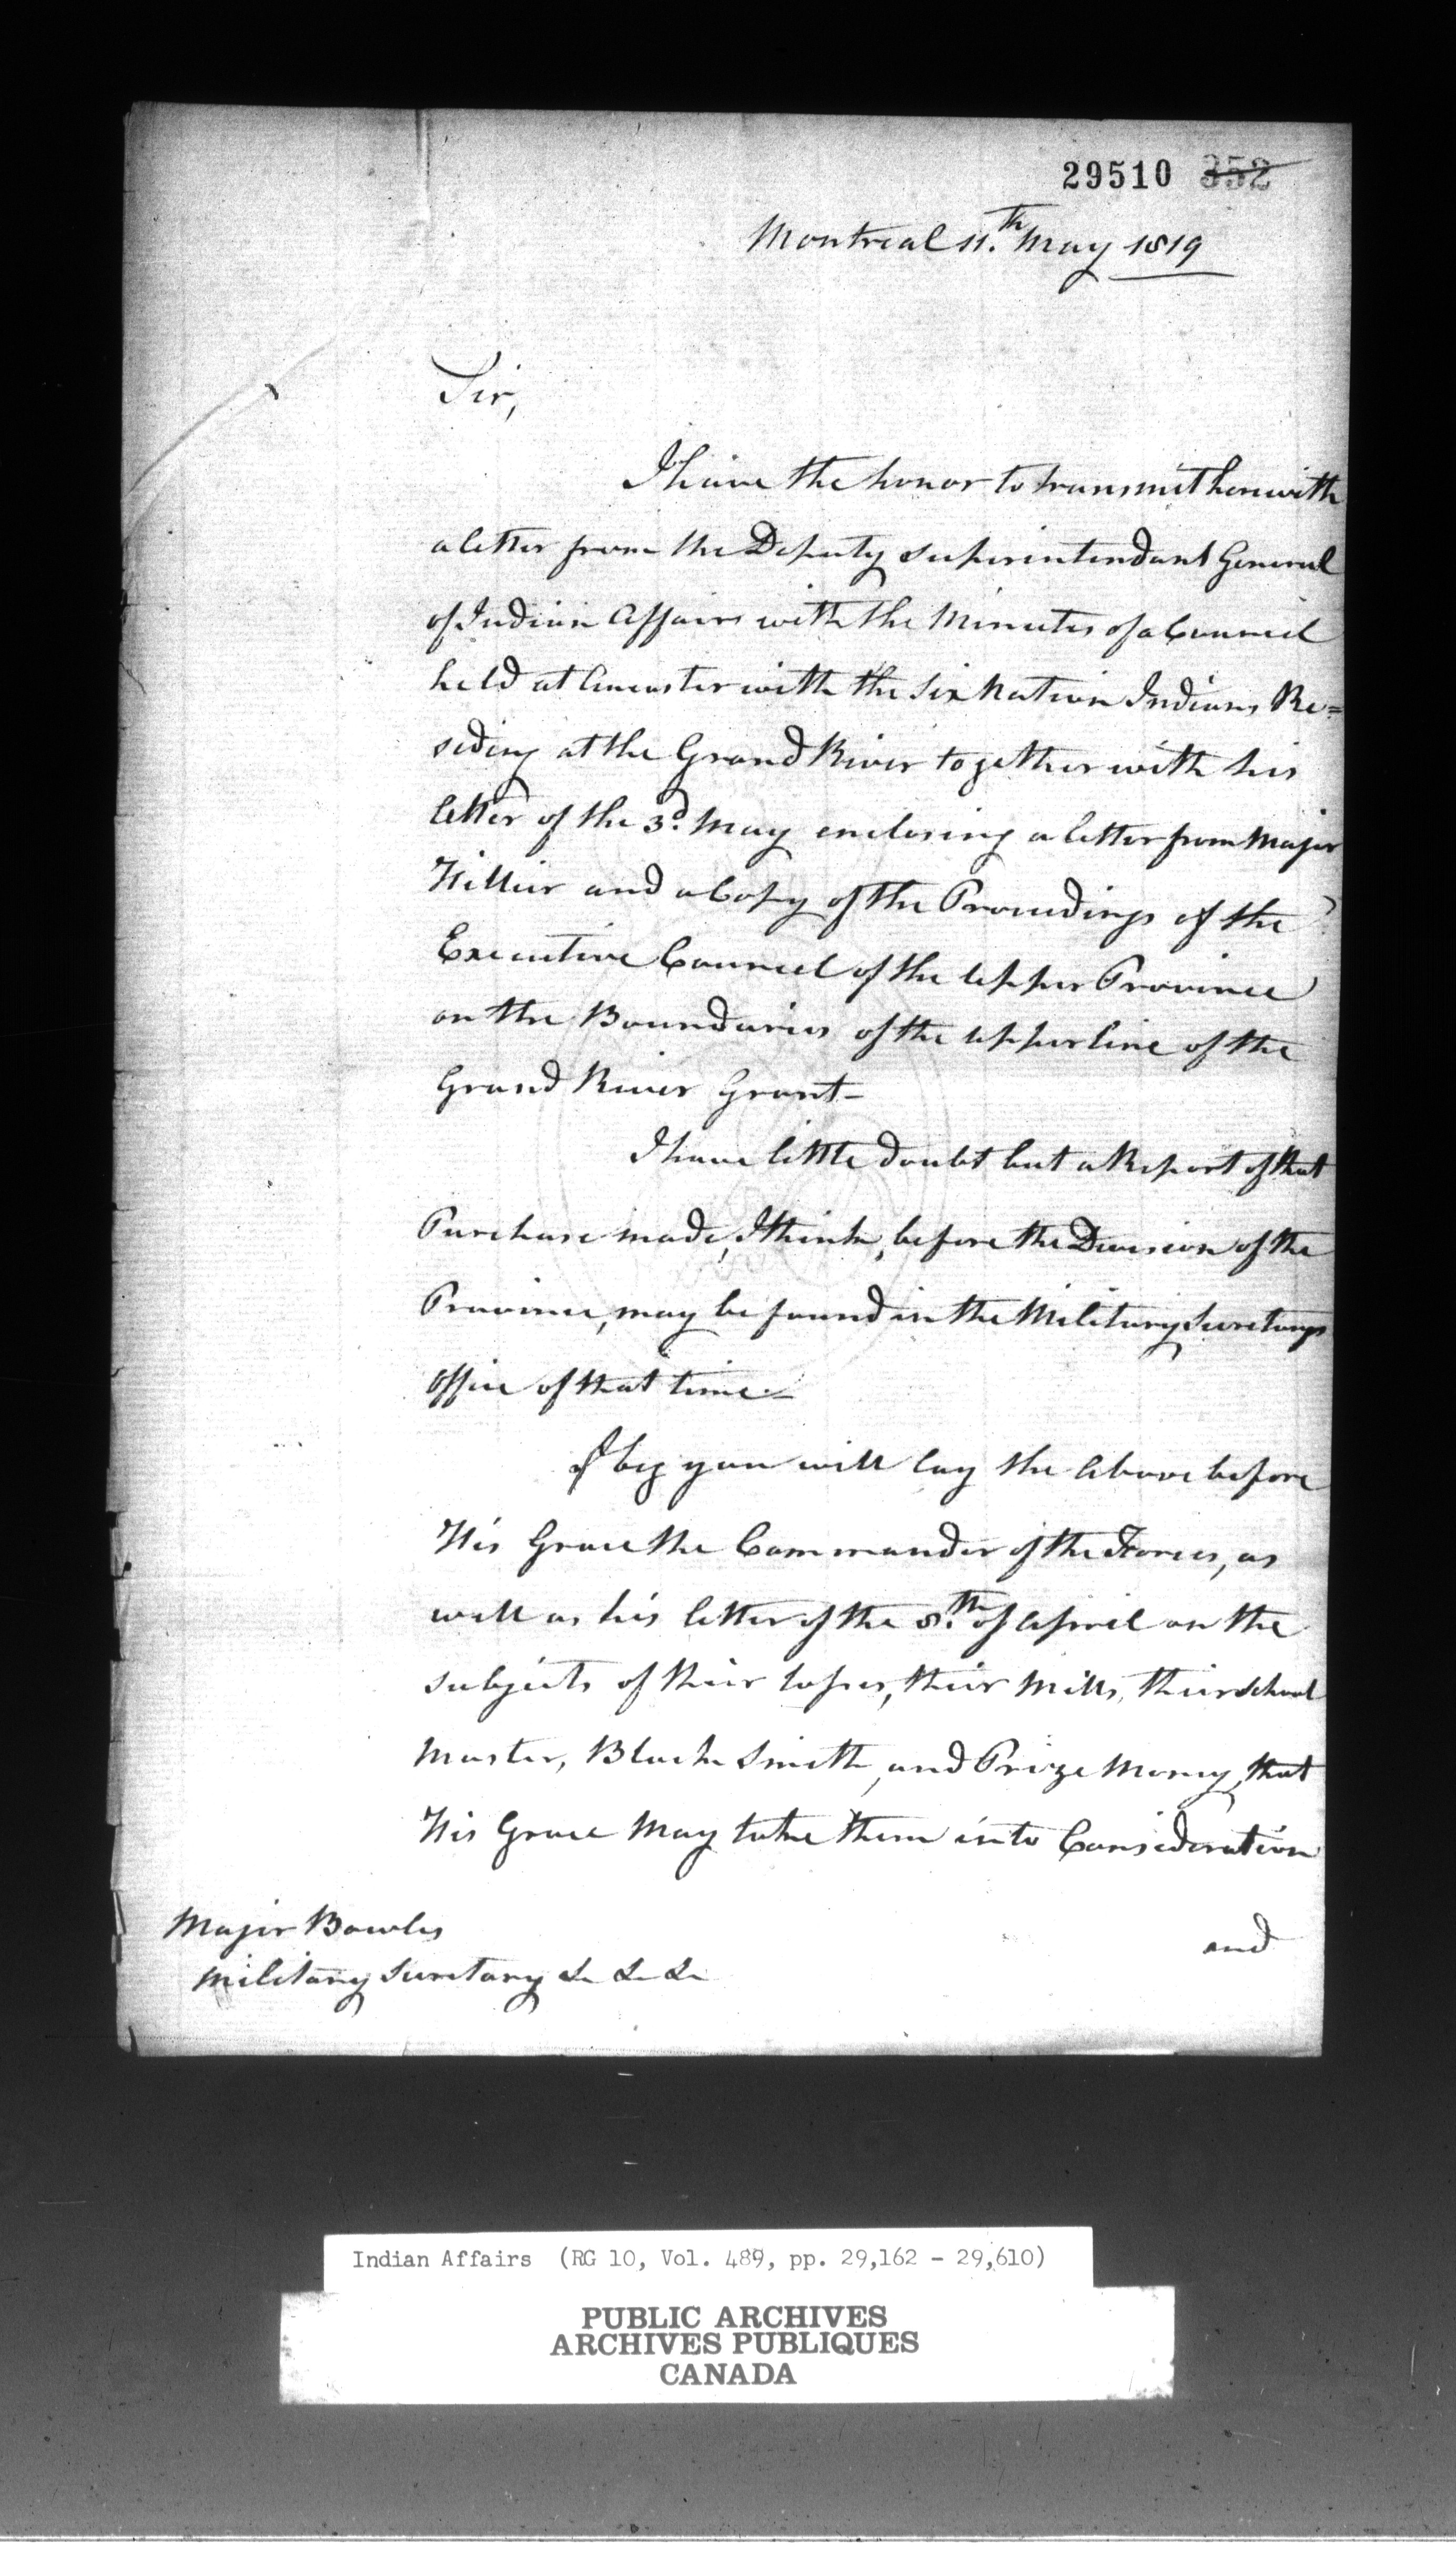 29510 352
Montreal 11th. May 1819
Sir,
I have the honor to transmit herewith
a letter from the Deputy superintendant General
of Indian Affairs with the Minutes of a Council
held at Ancaster with the Six Nation Indians Re=
siding at the Grand River together with his
letter of the 3d. May enclosing a letter from Major
Hillier and a Copy of the Proceedings of the
Executive Council of the Upper Province
on the Boundaries of the upper line of the
Grand River Grant—
I have little doubt but a Report of that
Purchase made, I think, before the Division of the
Province, may be found in the Military Secretarys
office of that time.—
I beg you will lay the above before
His Grace the Commander of the Forces, as
well as his letter of the 8th. of April on the
subjects of their losses, their Mills, their School
Master, Black Smith, and Prize Money, that
His Grace May take them into Consideration
and
Major Bowles
Military Secretary &c &c &c
Indian Affairs (RG 10, Vol. 489, pp. 29,162 - 29,610)
PUBLIC ARCHIVES
ARCHIVES PUBLIQUES
CANADA